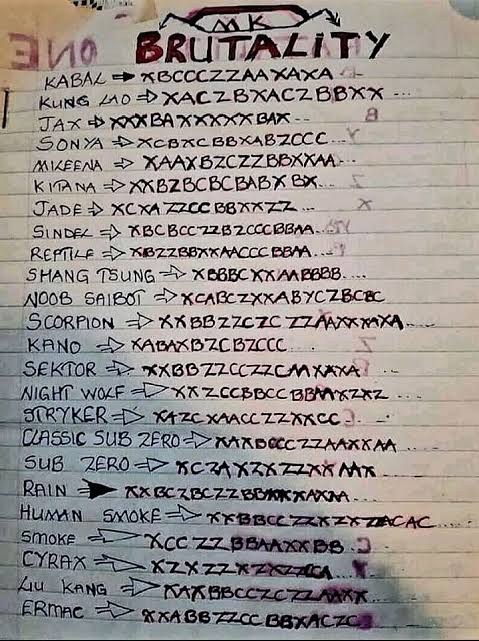 MK
BRUTALITY
KABAL → XBCCCZZAAXAXA
KUNG LAO ⇒ XACZBXACZBBXX ...
JAX ⇒ XXXBAXXXXXXBAX...
SONYA ⇒ XCBXCBBXABZCCC ...
MILEENA ⇒ XAAXBZCZZBBXXAA...
KITANA ⇒ XXBZBCBCBABXBX...
JADE ⇒ XCXAZZCCBBXXZZ ...
SINDEL ⇒ XBCBCCZZBZCCCBBAA...
REPTILE ⇒ XBZZBBXXAACCCBBAA....
SHANG TSUNG ⇒ XBBBCXXAABBBB....
NOOB SAIBOT ⇒ XCABCZXXABYCZBCBC
SCORPION ⇒ XXBBZZCZCZZAAXXXAXA....
KANO ⇒ XABAXBZCBZCCC ...
SEKTOR ⇒ XXBBZZCCZZCAAXAXA
NIGHT WOLF ⇒ XXZCCBBCCBBAAXZXZ ...
STRYKER ⇒ XAZCXAACCZZXXCC ...
CLASSIC SUB ZERO ⇒ XAXBCCCZZAAXXAA ....
SUB ZERO ⇒ XCZAXZXXZZXXAAX ...
RAIN ⇒
HUMAN SMOKE ⇒ XXBBCCZZXZXZZACAC ....
SMOKE ⇒ XCCZZBBAAXXBB ...
CYRAX ⇒
LIU KANG ⇒ XAXBBCCZCZZAAXX ...
ERMAC ⇒ XXABBZZCCBBXACZC